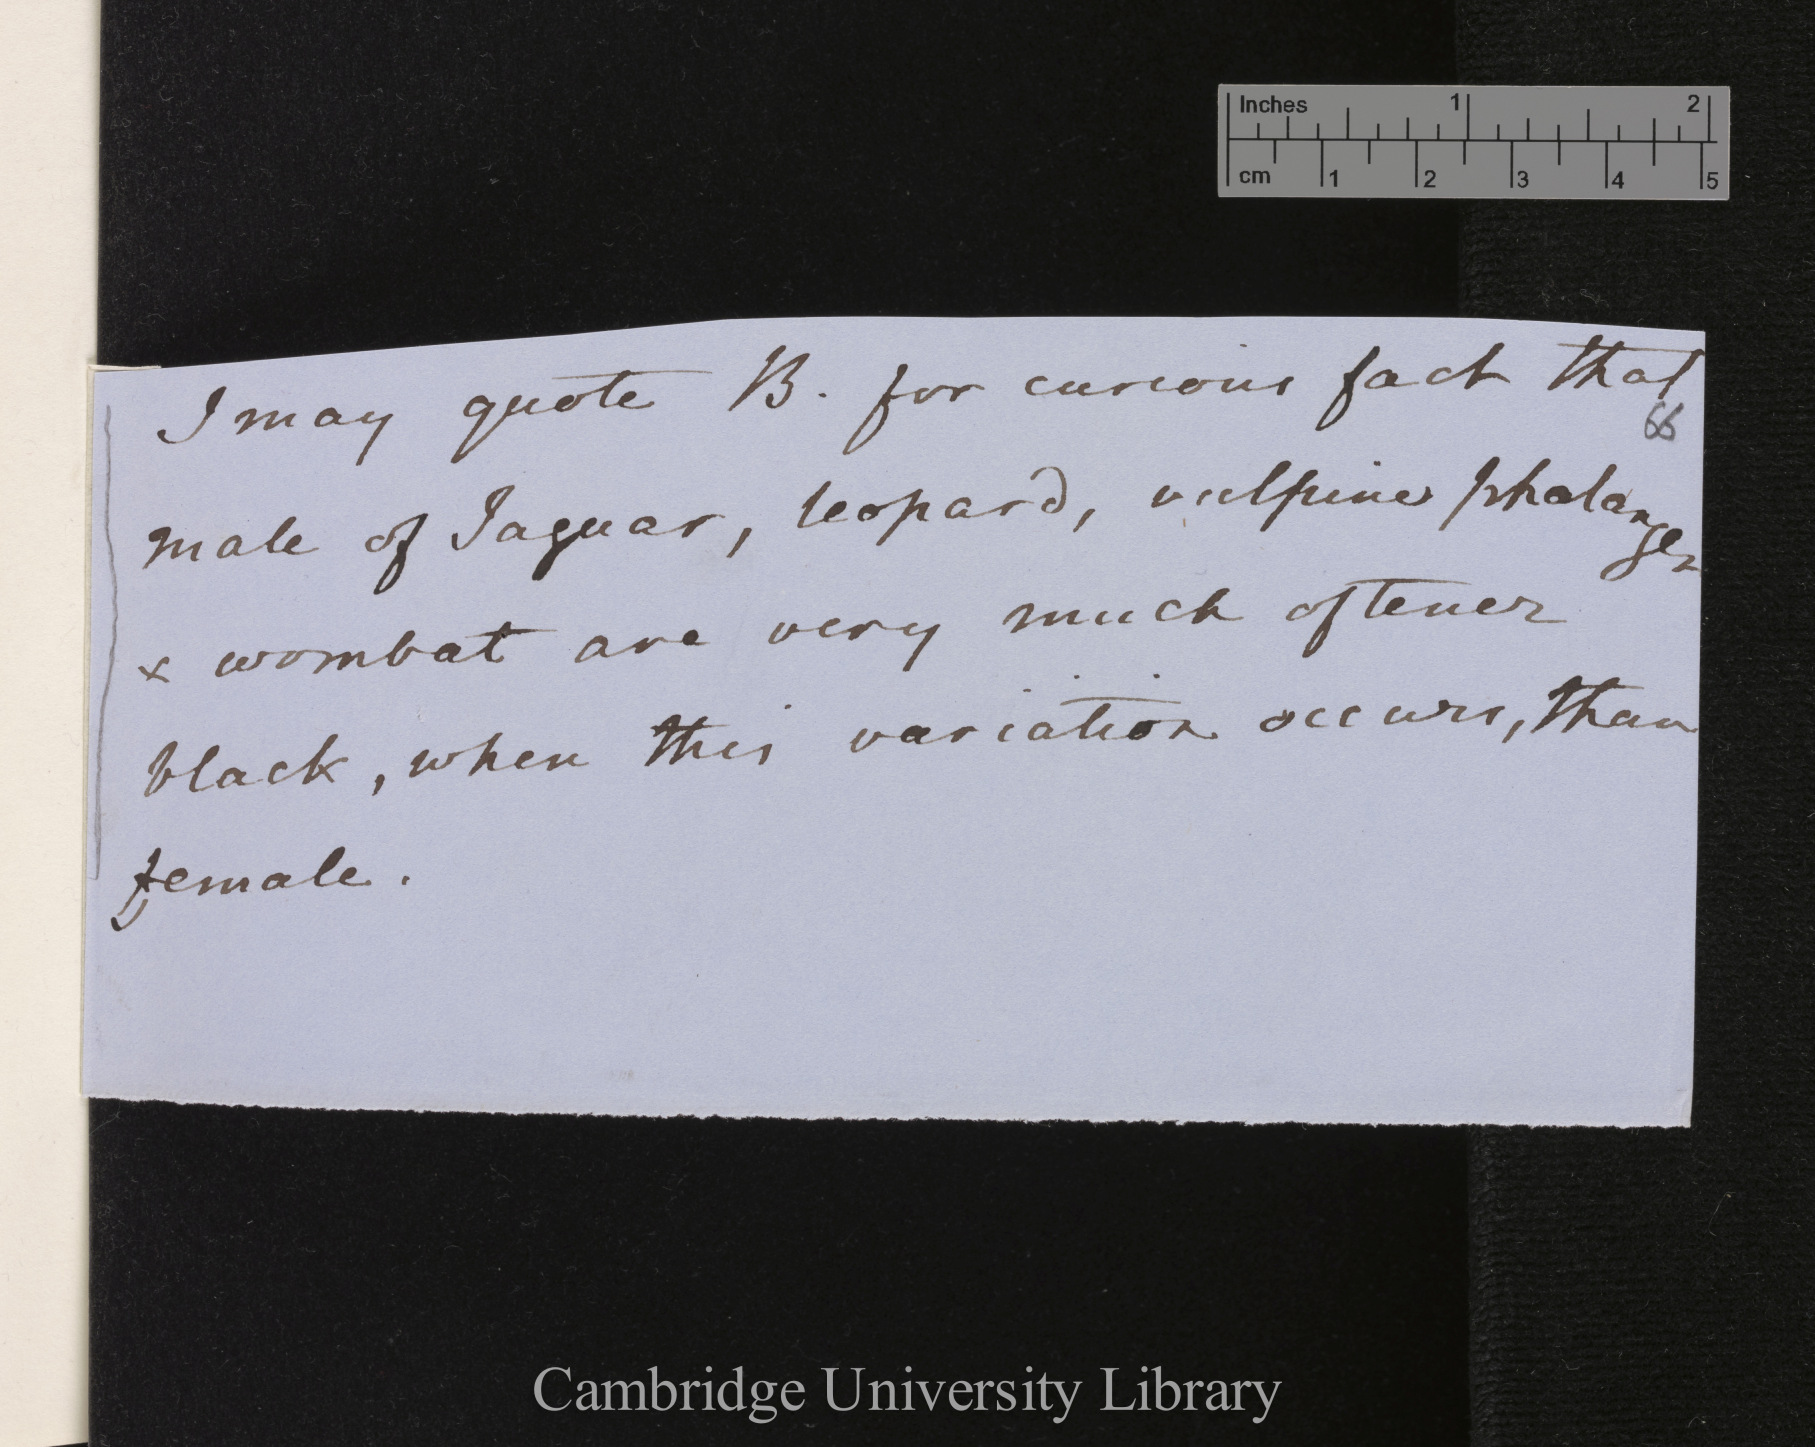 Inches 1 2
cm 1 2 3 4 5
I may quote B. for curious fact that
66
male of Jaguar, leopard, vulpine phalanger
& wombat are very much oftener
black, when this variation occurs, than
female.
Cambridge University Library